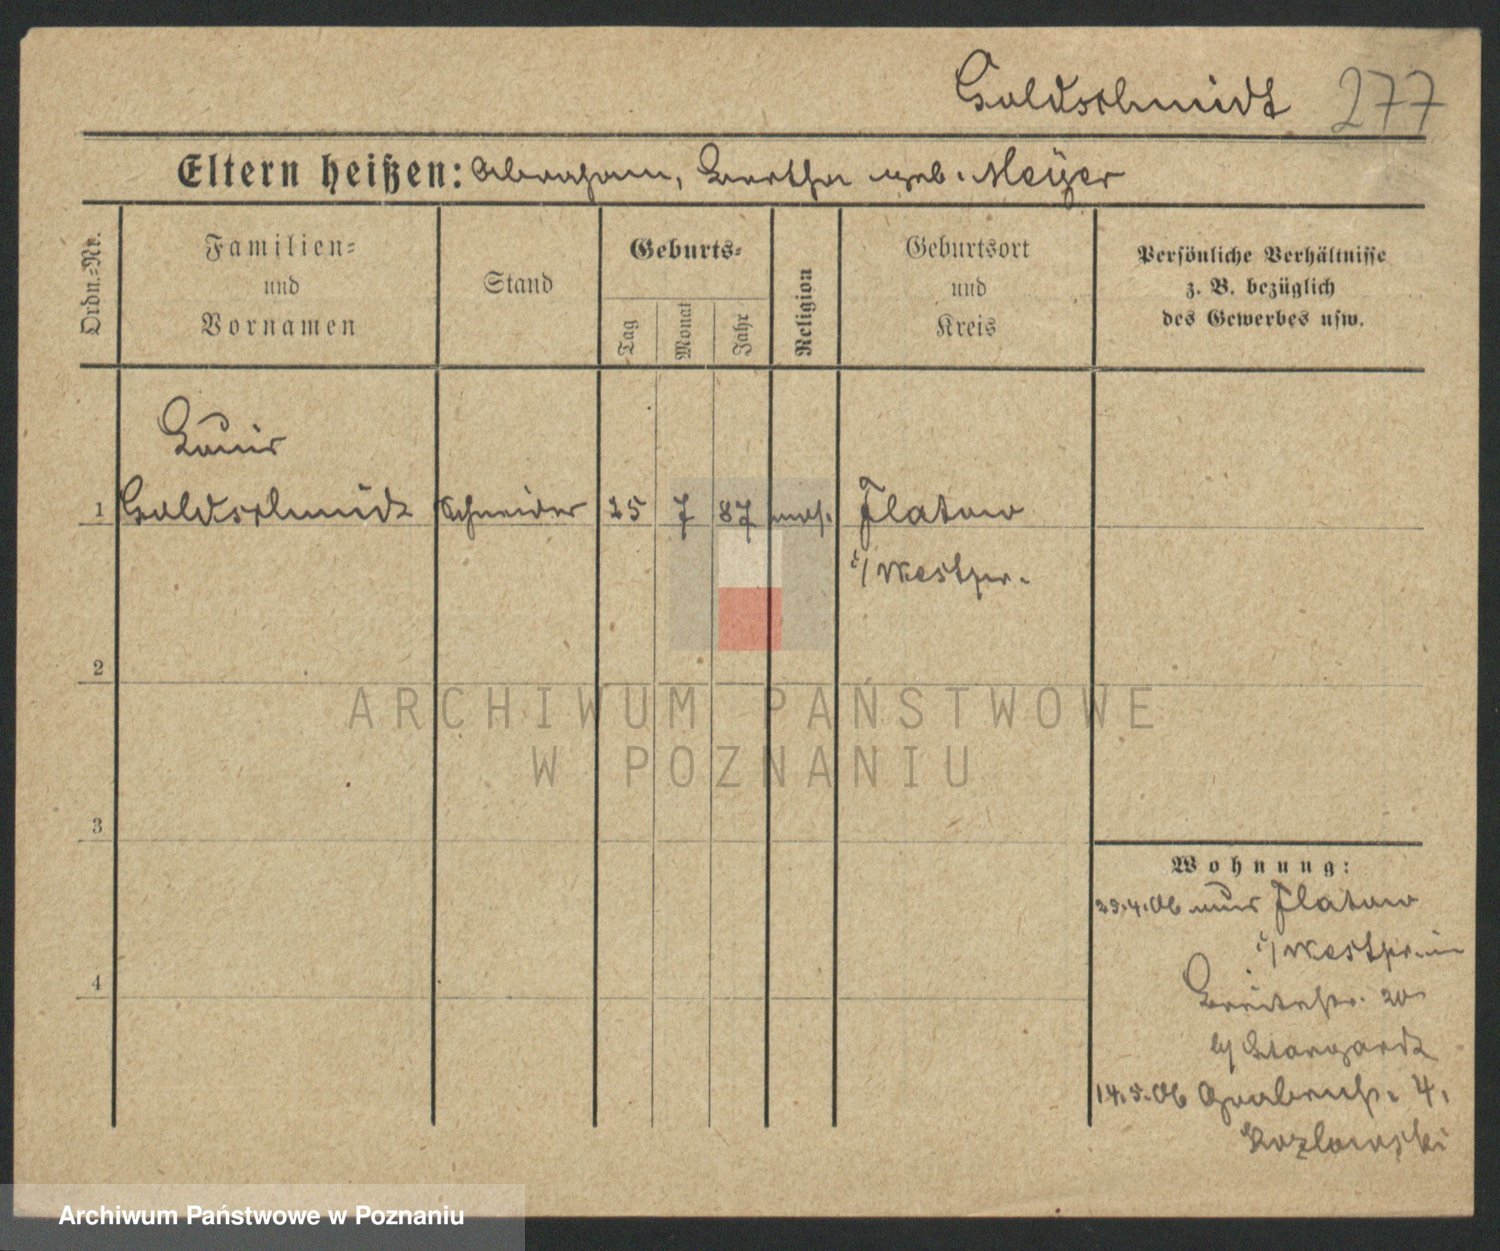 Goldschmidt 277
Eltern heißen: Abraham, Bertha geb. Meyer
Ordn.=Nr.
Familien=
und
Vornamen
Stand
Geburts=
Tag
Monat
Jahr
Religion
Geburtsort
und
Kreis
Persönliche Verhältnisse
z. B. bezüglich
des Gewerbes usw.
Louis
1 Goldschmidt Schneider 25 7 87 mos. Flatow
i/Westpr.
2
ARCHIWUM PAŃSTWOWE
W POZNANIU
3
Wohnung:
29.4.06 aus Flatow
i/Westpr. in
4
Breitestr. 20
b/ Stargardt
14.5.06 Grabenstr. 4.
Kozlowski
Archiwum Państwowe w Poznaniu